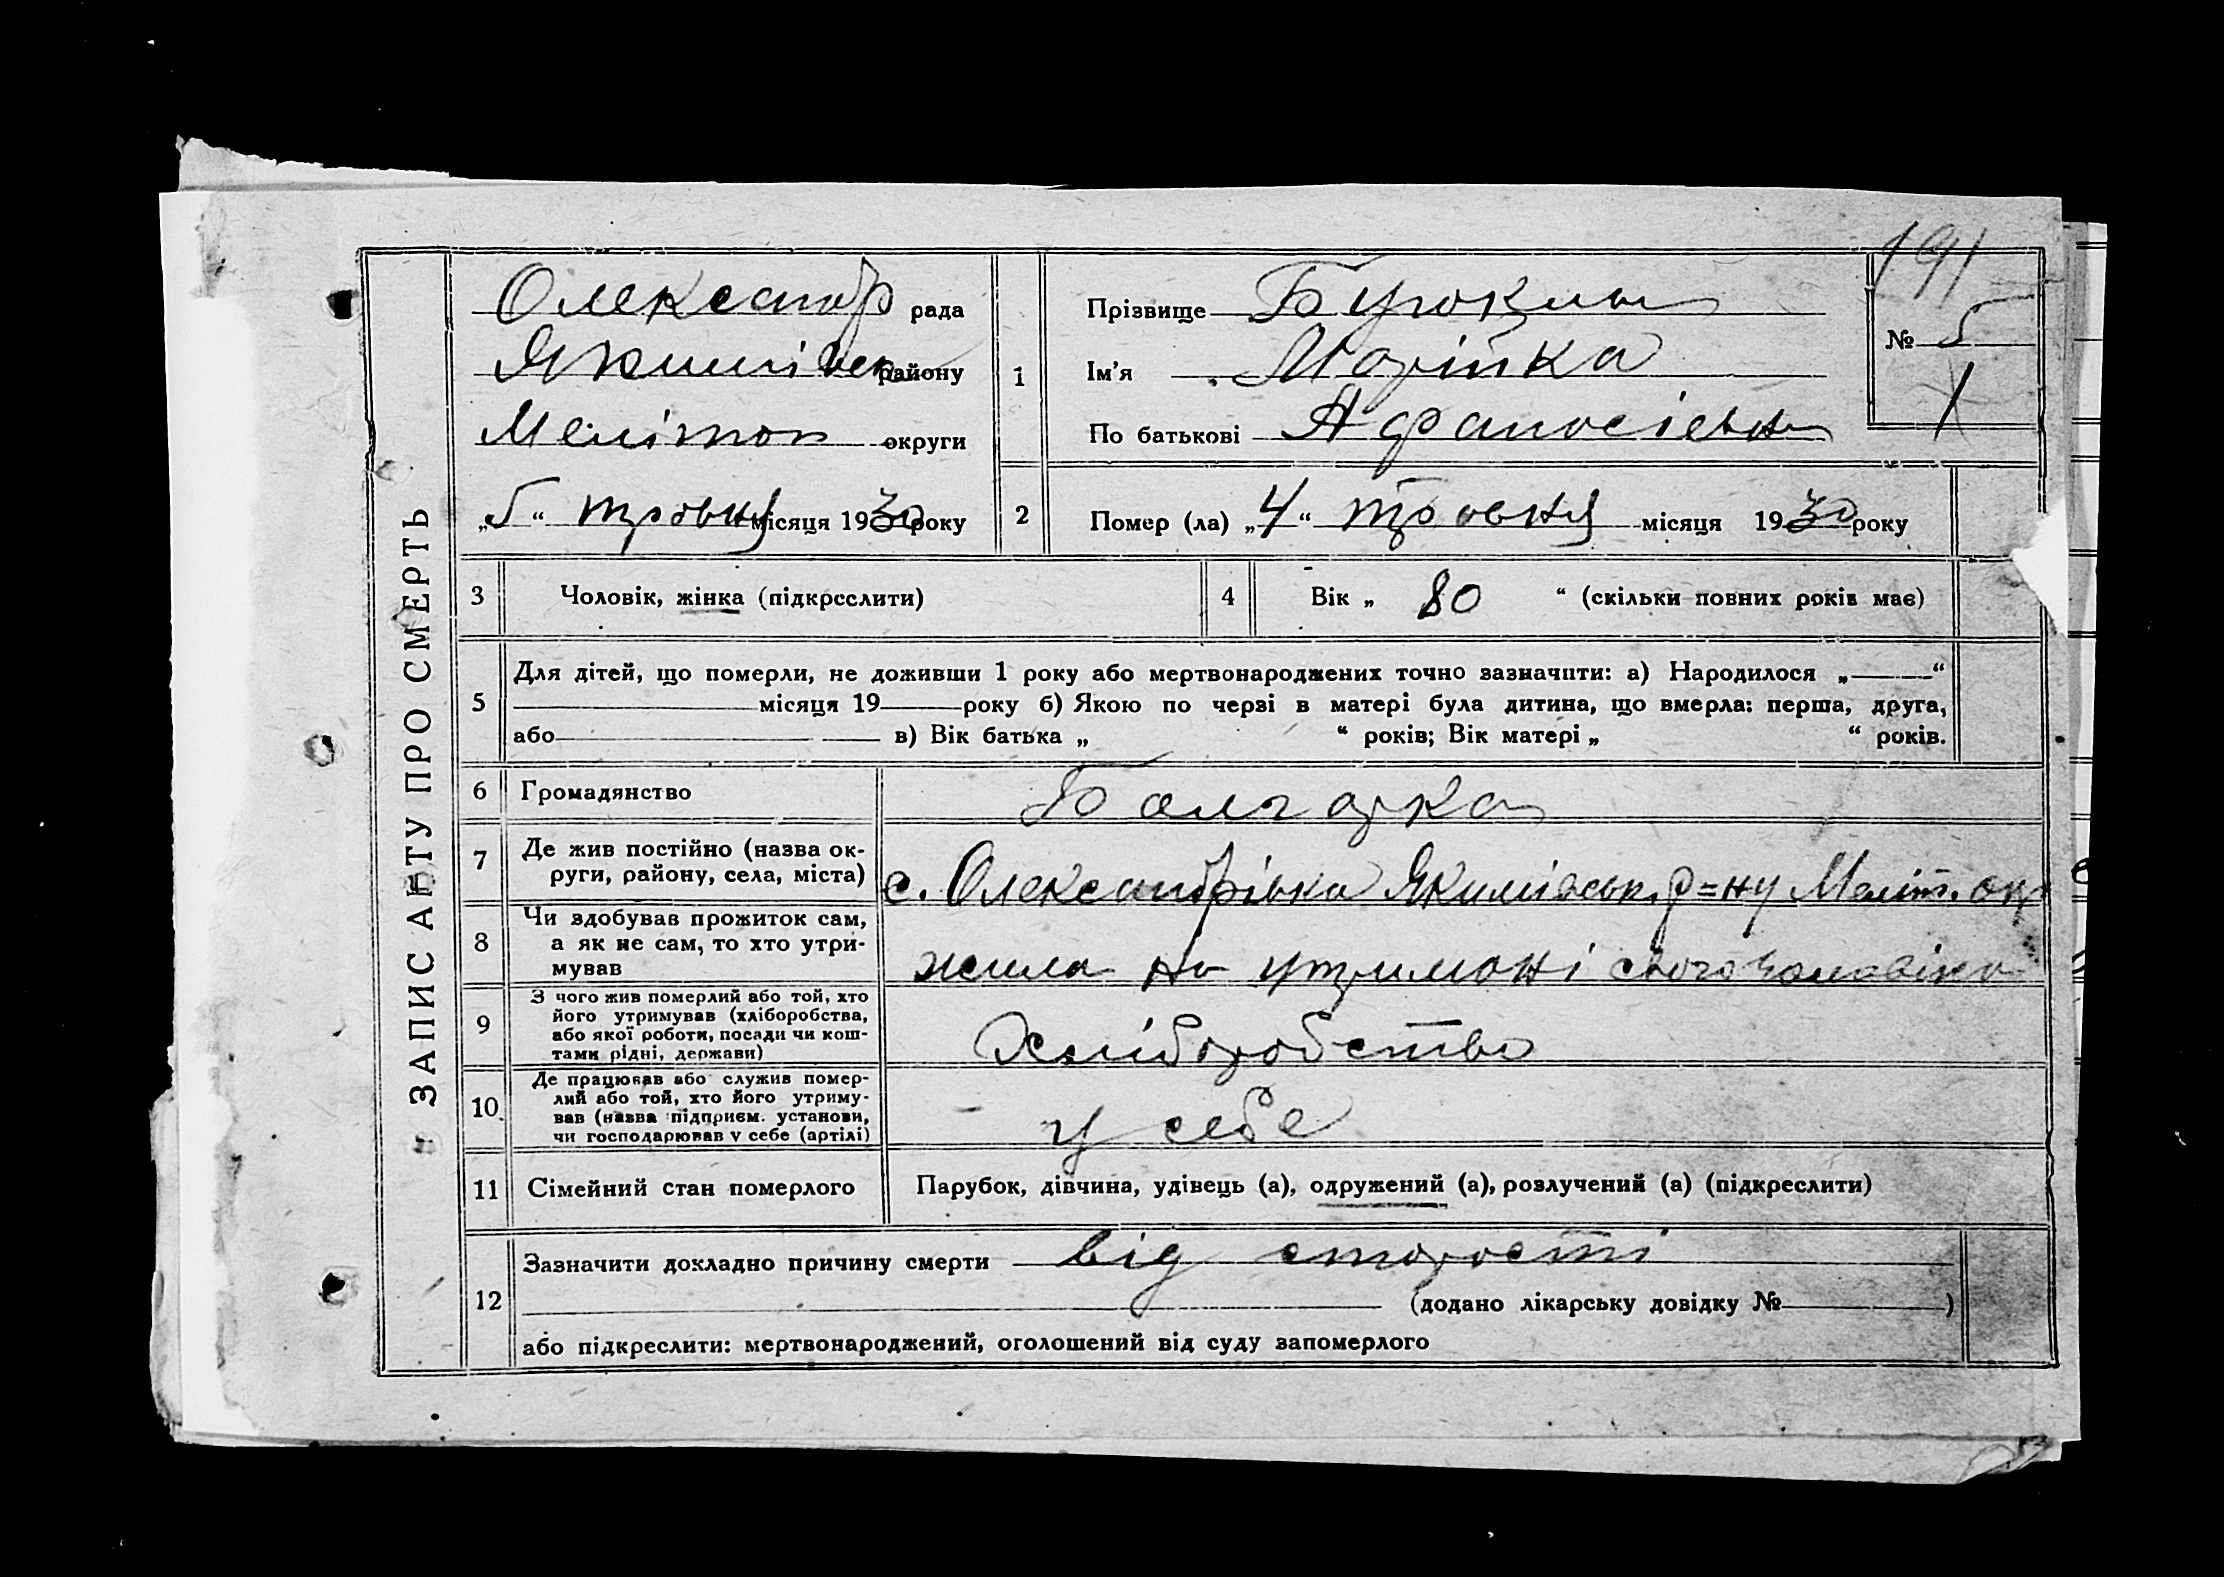 191
ЗАПИС АКТУ ПРО СМЕРТЬ
Олександр рада
Якимівськ району
Меліпоп округи
„5“ травня місяця 1930 року
1
Прізвище
Ім'я Марійка
По батькові Афанасієвн
№ 5
1
2
Помер (ла) „4“ травня місяця 1930 року
3 Чоловік, жінка (підкреслити)
4 Вік „ 80 “ (скільки повних років має)
5
Для дітей, що померли, не доживши 1 року або мертвонароджених точно зазначити: а) Народилося „——“
місяця 19 року б) Якою по черзі в матері була дитина, що вмерла: перша, друга,
або в) Вік батька „ “ років; Вік матері „ “ років.
6 Громадянство Болгарка
7 Де жив постійно (назва ок-
руги, району, села, міста) с. Олександрівка Якимівськ. р=ну Меліт. окр
8 Чи здобував прожиток сам,
а як не сам, то хто утри-
мував жила на утримані свого чоловіка
9 З чого жив померлий або той, хто
його утримував (хліборобства,
або якої роботи, посади чи кош-
тами рідні, держави) Хліборобство
10. Де працював або служив помер-
лий або той, хто його утриму-
вав (назва підприєм. установи,
чи господарював у себе (артілі) у себе
11 Сімейний стан померлого Парубок, дівчина, удівець (а), одружений (а), розлучений (а) (підкреслити)
12 Зазначити докладно причину смерти від старости
(додано лікарську довідку № )
або підкреслити: мертвонароджений, оголошений від суду запомерлого